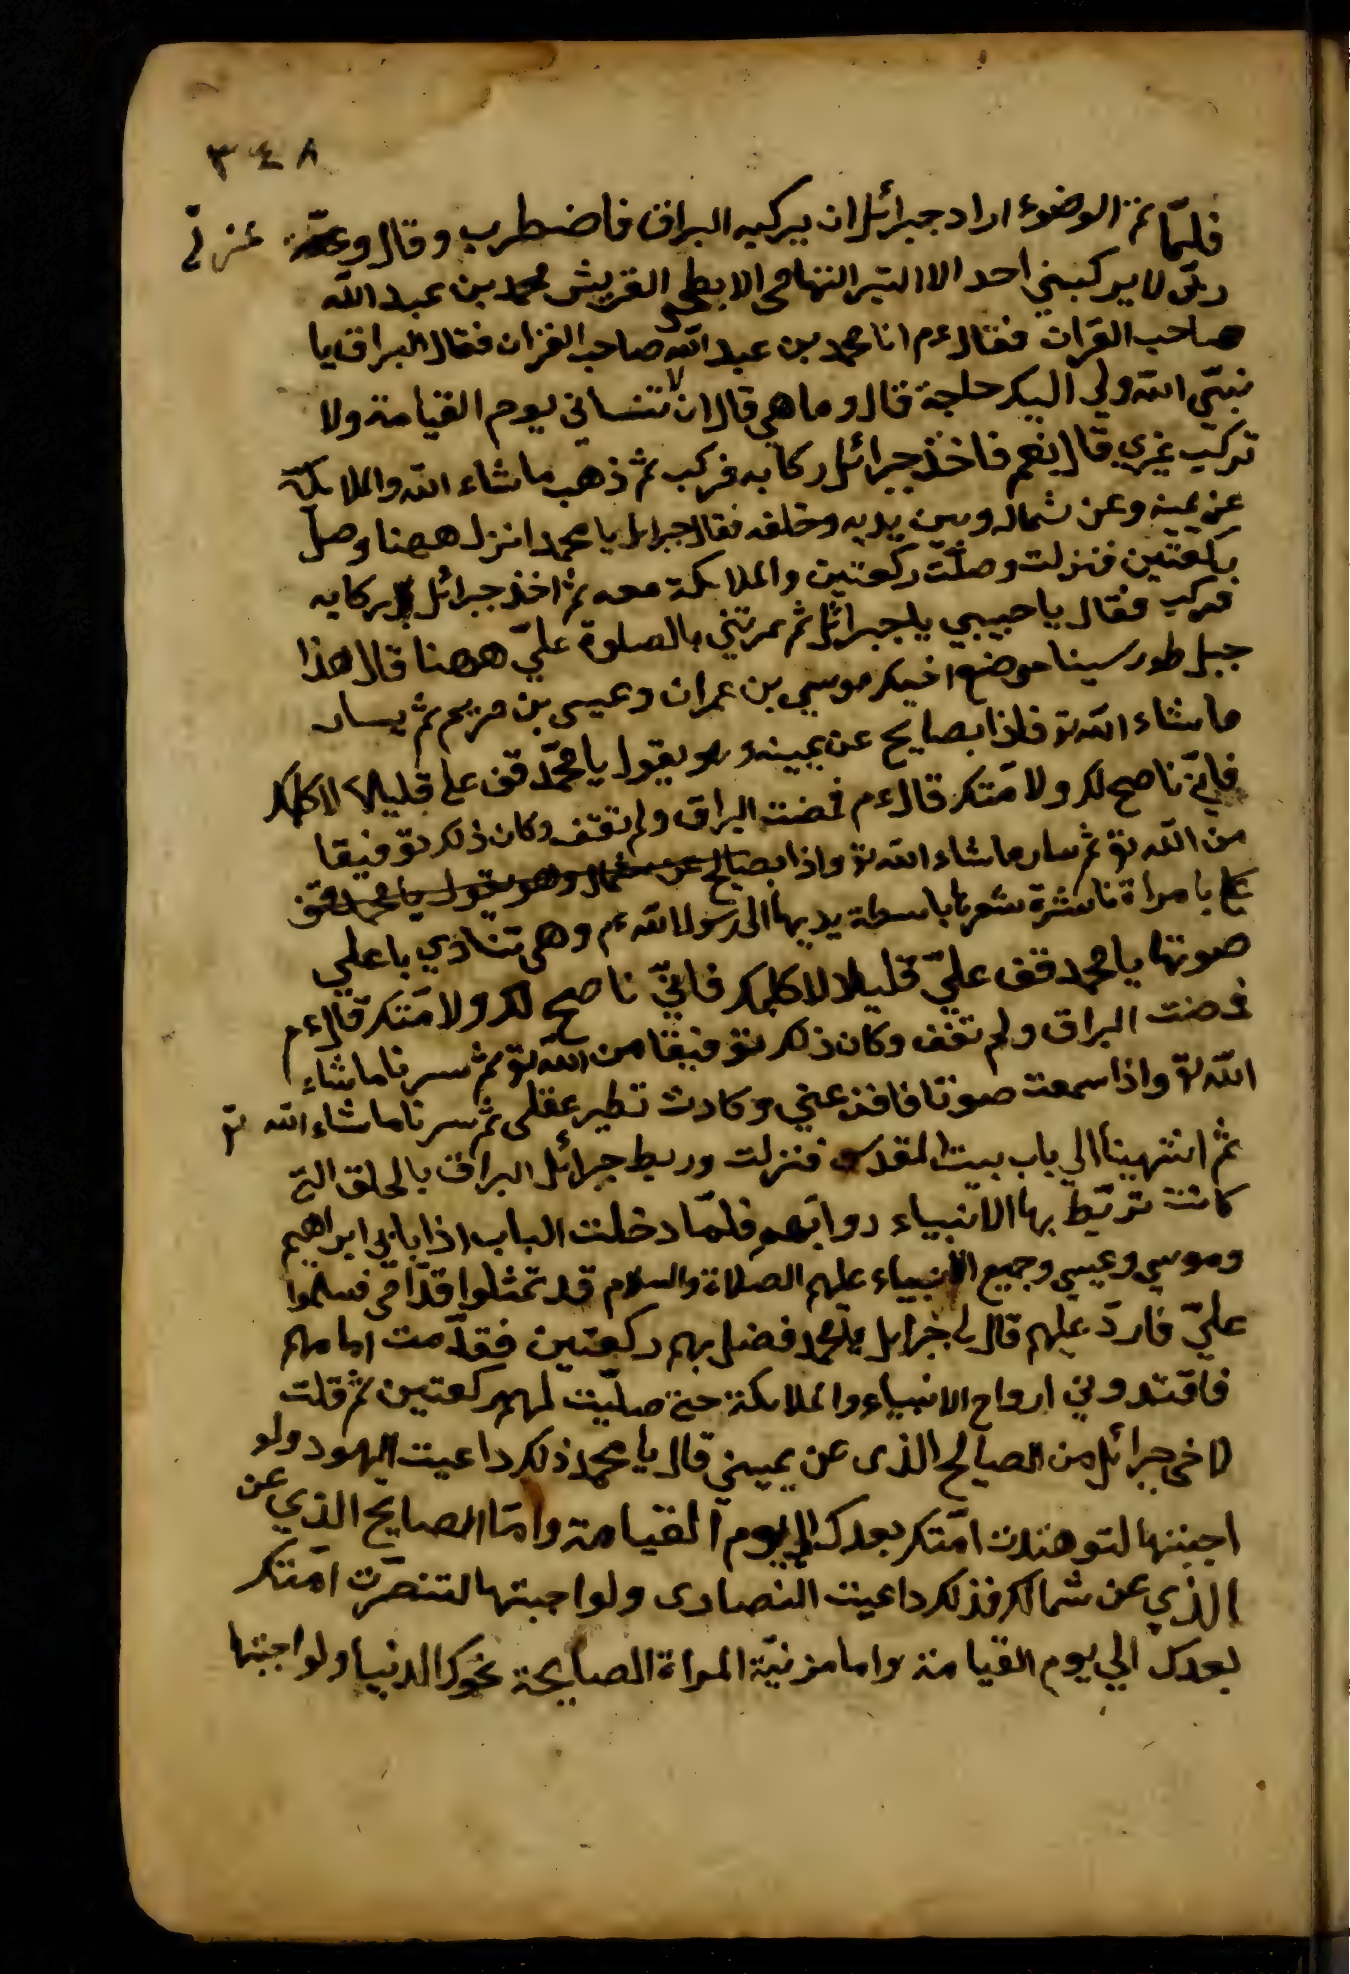 ٣٤٨
فلمّا تم الوضوء اراد جبرائل ان يركبه البراق فاضطرب وقال وعزّة عزتي
ربّي لا يركبني احد الا النبي التهامي الابطحي القريش محمد بن عبد الله
صاحب القرآن فقال ءم انا محمد بن عبد الله صاحب القران فقال البراق يا
نبيّ الله ولي اليك حاجة قال وما هي قال ان لا تنساني يوم القيامة ولا
تركب غيري قال نعم فاخذ جبرائل ركابه فركب ثم ذهب ما شاء الله والملائكة
عن يمينه وعن شماله وبين يديه وخلفه فقال جبرايل يا محمد انزل ههنا وصل
ركعتين فنزلت وصلّت ركعتين والملائكة معه ثم اخذ جبرائل بركابه
فركب فقال يا حبيبي يا جبرائل ثم مرتني بالصلوة عليّ ههنا قال هذا
جبل طور سينا موضع اخيك موسي بن عمران وعيسى بن مريم ثم يسار
ما شاء الله تو فاذا بصايح عن يمينه وهو يقول يا محمّد قف علي قليلا لاكلمك
فانّي ناصح لك ولامّتك قال ءم فمضت البراق ولم تقف وكان ذلك توفيقا
من الله تو ثم سار ما شاء الله تو واذا بصايح عن شماله وهو يقول يا محمد قف
علي بامراة ناشرة شعرها باسطة يديها الى رسول الله ءم وهي تنادي باعلي
صوتها يا محمد قف عليّ قليلا لاكلمك فانّي ناصح لك ولامّتك قال ءم
فمضت البراق ولم تقف وكان ذلك توفيقا من الله تو ثم سرنا ما شاء
الله تو واذا سمعت صوتا فافزعني وكادت تطير عقلي ثم سرنا ما شاء الله تو
ثم انتهينا الي باب بيت المقدس فنزلت وربط جبرائل البراق بالحلق التي
كانت تربّط بها الانبياء دوابّهم فلمّا دخلت الباب اذا بابي ابراهيم
وموسي وعيسي وجميع الانبياء عليهم الصلاة والسلام قد تمثلوا قدّامي فسلموا
عليّ فاردّ عليهم قال لي جبرايل يا محمد فصل بهم ركعتين فقدّمت امامهم
فاقتدوني ارواح الانبياء والملائكة حتي صليّت لهم ركعتين ثم قلت
لاخي جبرائل من الصيالح الذى عن يميني قال يا محمد ذلك داعيت اليهود ولو
اجبتها لتوهندت امّتك بعدك الي يوم القيامة وامّا الصايح الذي عن
الذي عن شمالك فذلك داعيت النصارى ولو اجبتها لتنصّرت امّتك
بعدك الي يوم القيامة واما مزنيّة المراة الصايحة نحوك الدنيا ولو اجبتها